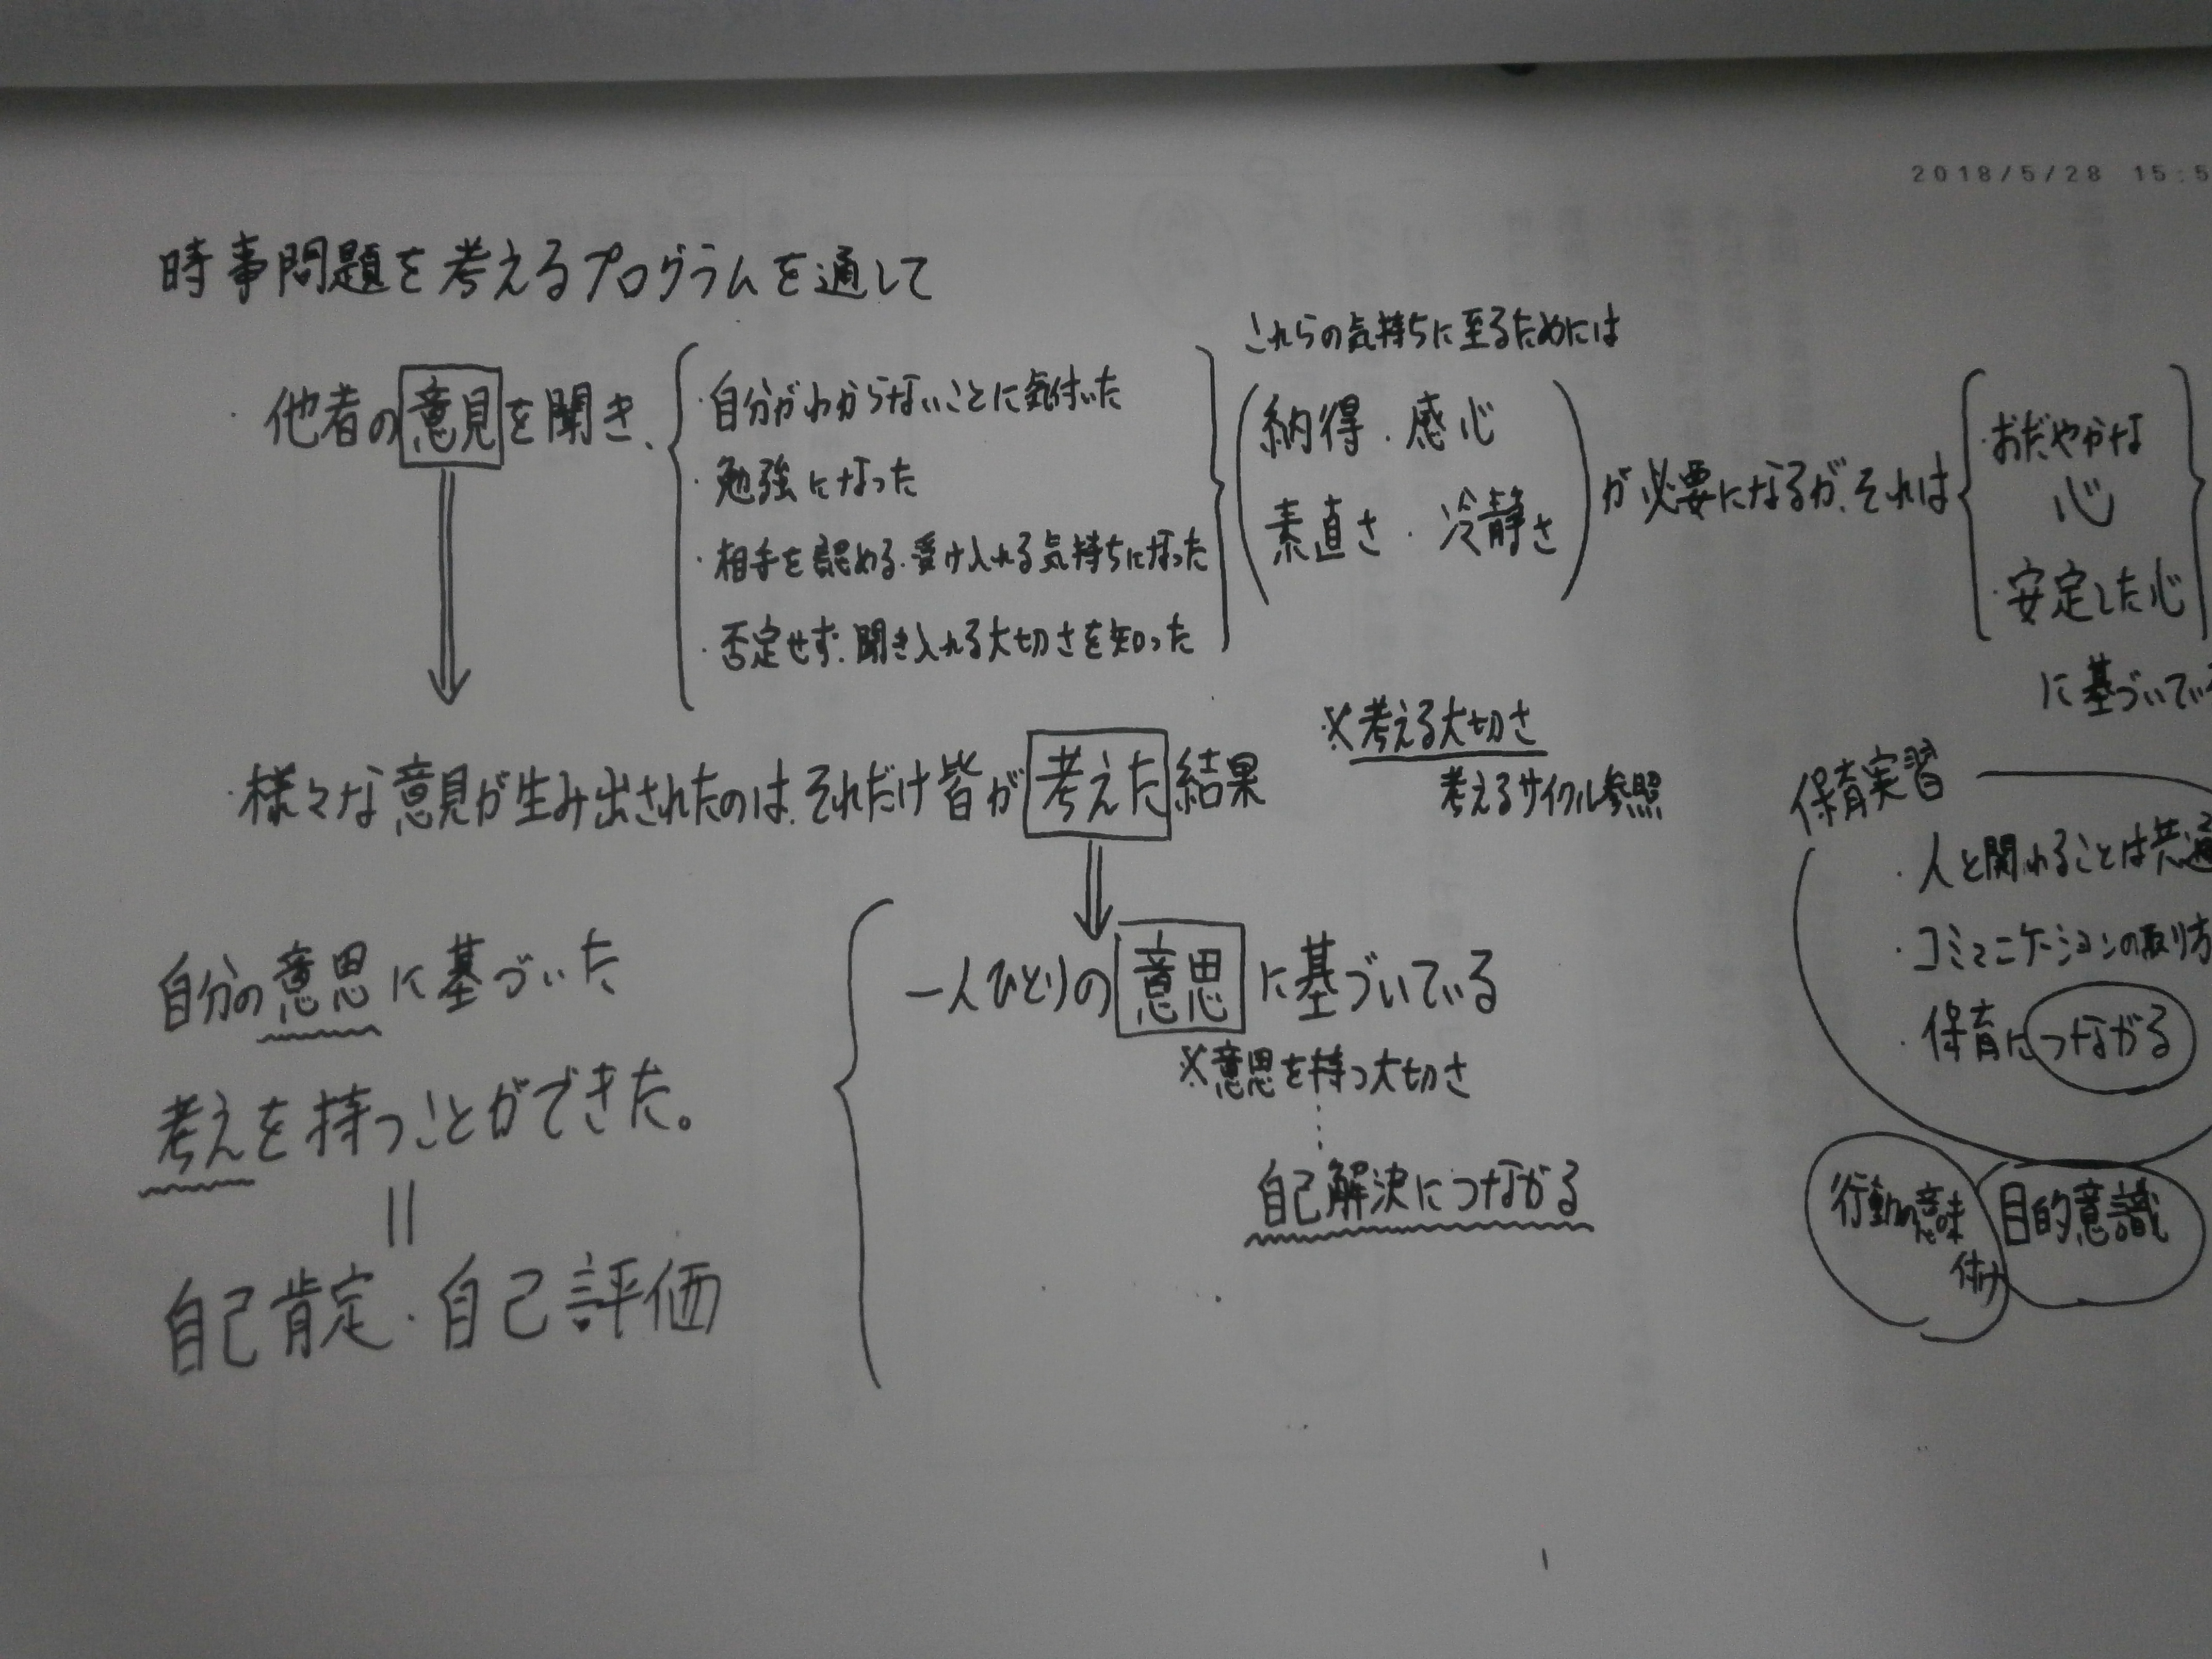 2018/5/28 15:5
時事問題を考えるプログラムを通して
・他者の意見を聞き、
・自分がわからないことに気付いた
・勉強になった
・相手を認める・受け入れる気持ちになった
・否定せず、聞き入れる大切さを知った
これらの気持ちに至るためには
納得・感心
素直さ・冷静さ
が必要になるが、それは
・おだやかな
心
・安定した心
に基づいてい
・様々な意見が生み出されたのは、それだけ皆が考えた結果
※考える大切さ
考えるサイクル参照
一人ひとりの意思に基づいている
※意思を持つ大切さ
自己解決につながる
自分の意思に基づいた
考えを持つことができた。
||
自己肯定・自己評価
保育実習
・人と関わることは共通
・コミュニケーションの取り方
・保育につながる
行動の意味
付け
目的意識